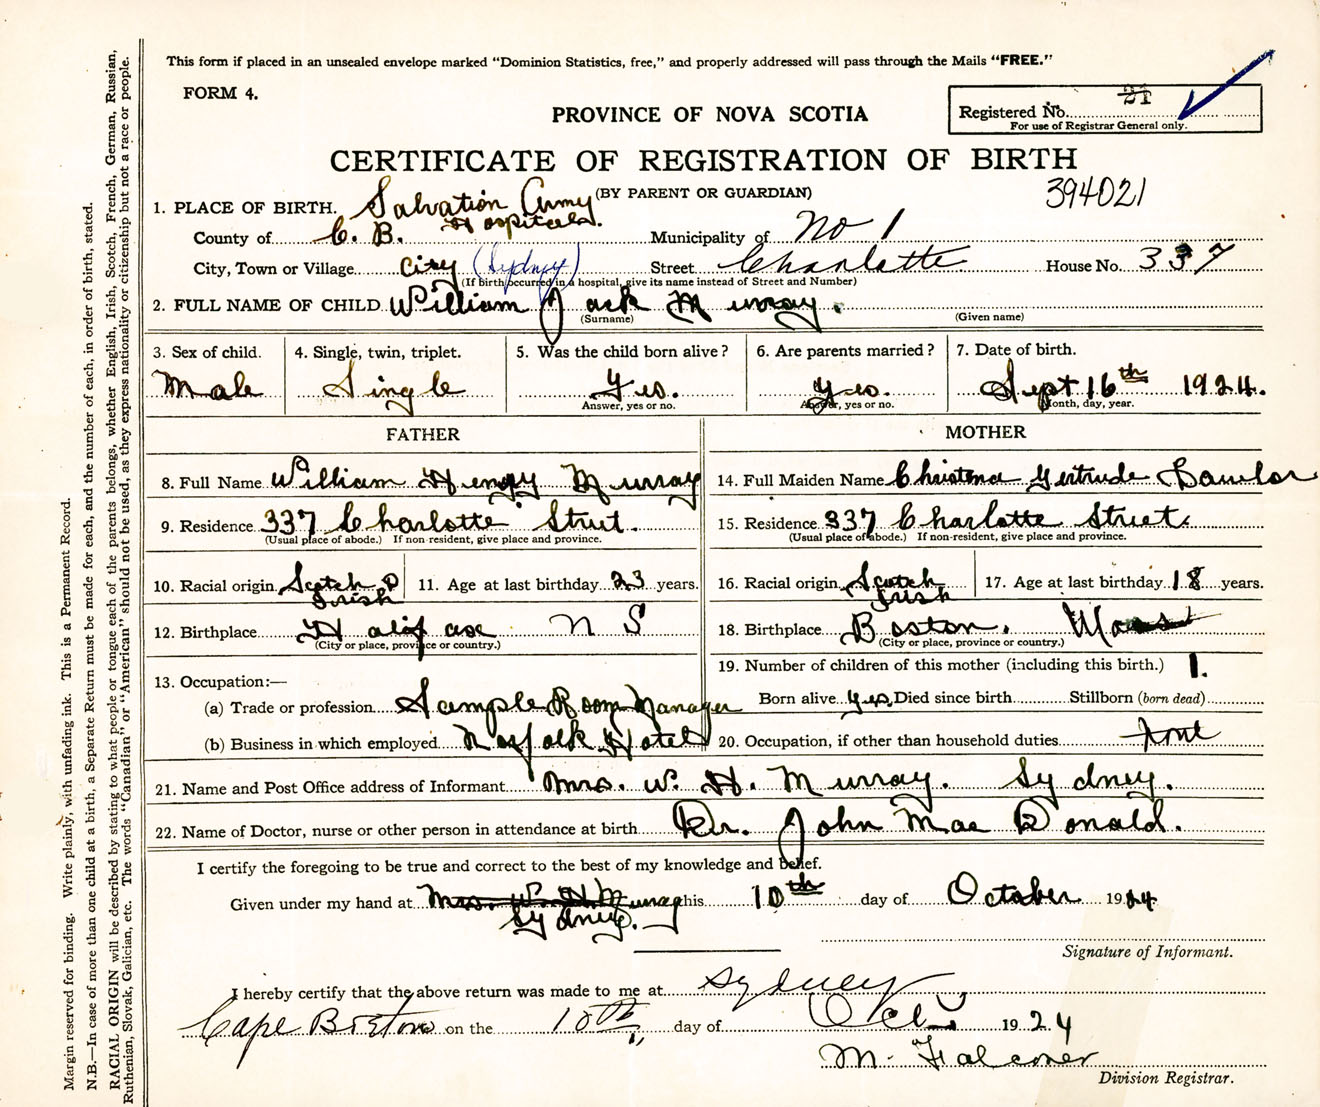 This form if placed in an unsealed envelope marked “Dominion Statistics, free,” and properly addressed will pass through the Mails “FREE.”
FORM 4.
PROVINCE OF NOVA SCOTIA
Registered No. 21
For use of Registrar General only.
CERTIFICATE OF REGISTRATION OF BIRTH
(BY PARENT OR GUARDIAN)
394021
1. PLACE OF BIRTH. Salvation Army Hospital.
County of C. B. Municipality of No 1
City, Town or Village City (Sydney) Street Charlotte House No. 337
(If birth occurred in a hospital, give its name instead of Street and Number)
2. FULL NAME OF CHILD William Jack Murray.
(Surname) (Given name)
3. Sex of child. 4. Single, twin, triplet. 5. Was the child born alive? 6. Are parents married? 7. Date of birth.
Male Single Yes. Yes. Sept 16th 1924.
Answer, yes or no. Answer, yes or no. Month, day, year.
FATHER MOTHER
8. Full Name William Henry Murray 14. Full Maiden Name Christena Gertrude Lawlor
9. Residence 337 Charlotte Street. 15. Residence 337 Charlotte Street.
(Usual place of abode.) If non-resident, give place and province. (Usual place of abode.) If non-resident, give place and province.
10. Racial origin Scotch Irish 11. Age at last birthday 23 years. 16. Racial origin Scotch Irish 17. Age at last birthday 18 years.
12. Birthplace Halifax N S 18. Birthplace Boston. Mass
(City or place, province or country.) (City or place, province or country.)
13. Occupation:— 19. Number of children of this mother (including this birth.) 1.
(a) Trade or profession Sample Room Manager Born alive yes, Died since birth Stillborn (born dead)
(b) Business in which employed Norfolk Hotel 20. Occupation, if other than household duties
21. Name and Post Office address of Informant Mrs. W. H. Murray. Sydney.
22. Name of Doctor, nurse or other person in attendance at birth Dr. John Mac Donald.
I certify the foregoing to be true and correct to the best of my knowledge and belief.
Given under my hand at Mrs. W. H Murray this 10th day of October 1924
Sydney.
Signature of Informant.
I hereby certify that the above return was made to me at Sydney
Cape Breton on the 10th day of Oct 1924
M. Falconer
Division Registrar.
Margin reserved for binding. Write plainly, with unfading ink. This is a Permanent Record.
N.B.—In case of more than one child at a birth, a Separate Return must be made for each, and the number of each, in order of birth, stated.
RACIAL ORIGIN will be described by stating to what people or tongue each of the parents belongs, whether English, Irish, Scotch, French, German, Russian,
Ruthenian, Slovak, Galician, etc. The words “Canadian” or “American” should not be used, as they express nationality or citizenship but not a race or people.